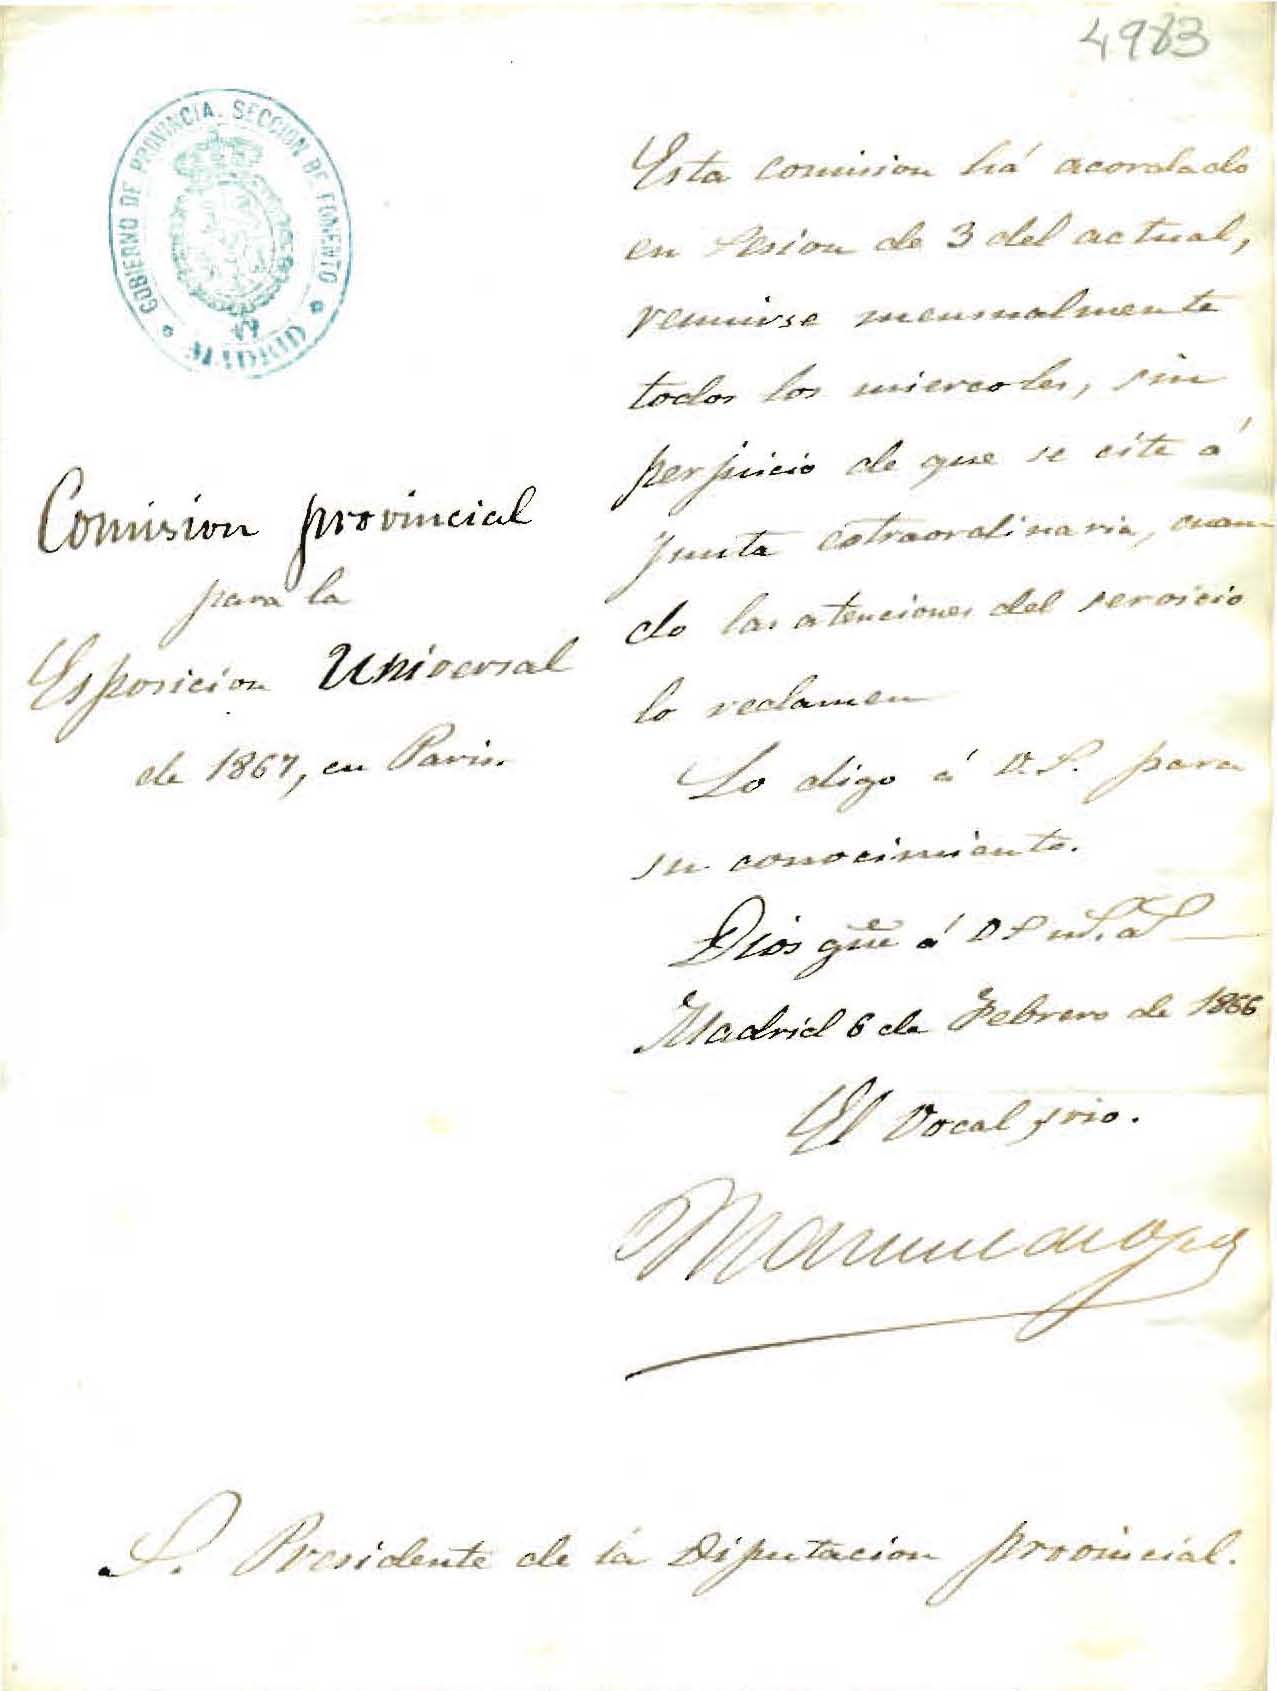 4983
GOBIERNO DE PROVINCIA. SECCION DE FOMENTO
MADRID
Comision provincial
para la
Esposicion Universal
de 1867, en Paris.
Esta comision há acordado
en sesion de 3 del actual,
reunirse mensualmente
todos los miercoles, sin
perjuicio de que se cite á
junta extraordinaria, cuan
do las atenciones del servicio
lo reclamen
Lo digo á V.S. para
su conocimiento.
Dios gũe á V S m.s a.s
Madrid 6 de Febrero de 1866
El Vocal srio.
S. Presidente de la Diputacion provincial.